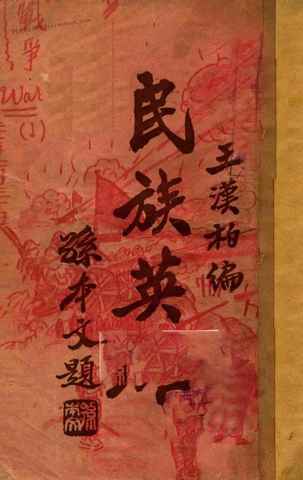 王漢柏編
民族英
孫本文題
戰爭
War
(1)